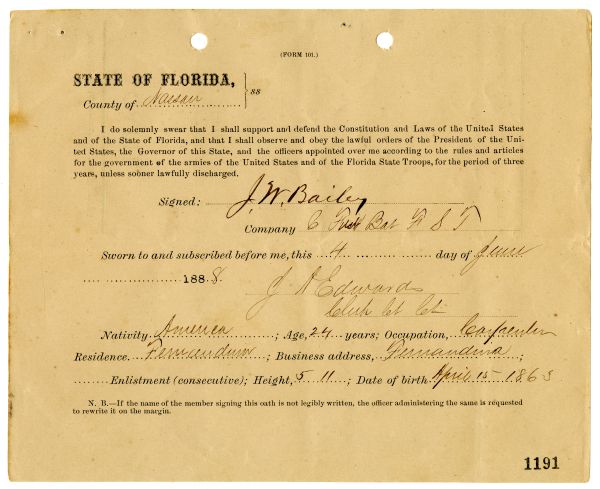 (FORM 101.)
STATE OF FLORIDA,
County of Nassau } ss
I do solemnly swear that I shall support and defend the Constitution and Laws of the United States
and of the State of Florida, and that I shall observe and obey the lawful orders of the President of the Uni-
ted States, the Governor of this State, and the officers appointed over me according to the rules and articles
for the government of the armies of the United States and of the Florida State Troops, for the period of three
years, unless sooner lawfully discharged.
Signed: J. W. Bailey
Company C First Bat F S T
Sworn to and subscribed before me, this 4 day of June
1888.
J A Edwards
Clerk Ct Ct
Nativity America ; Age, 24 years; Occupation, Carpenter
Residence. Fernandina ; Business address, Fernandina ;
Enlistment (consecutive); Height, 5 11 ; Date of birth April 15 1863
N. B.—If the name of the member signing this oath is not legibly written, the officer administering the same is requested
to rewrite it on the margin.
1191